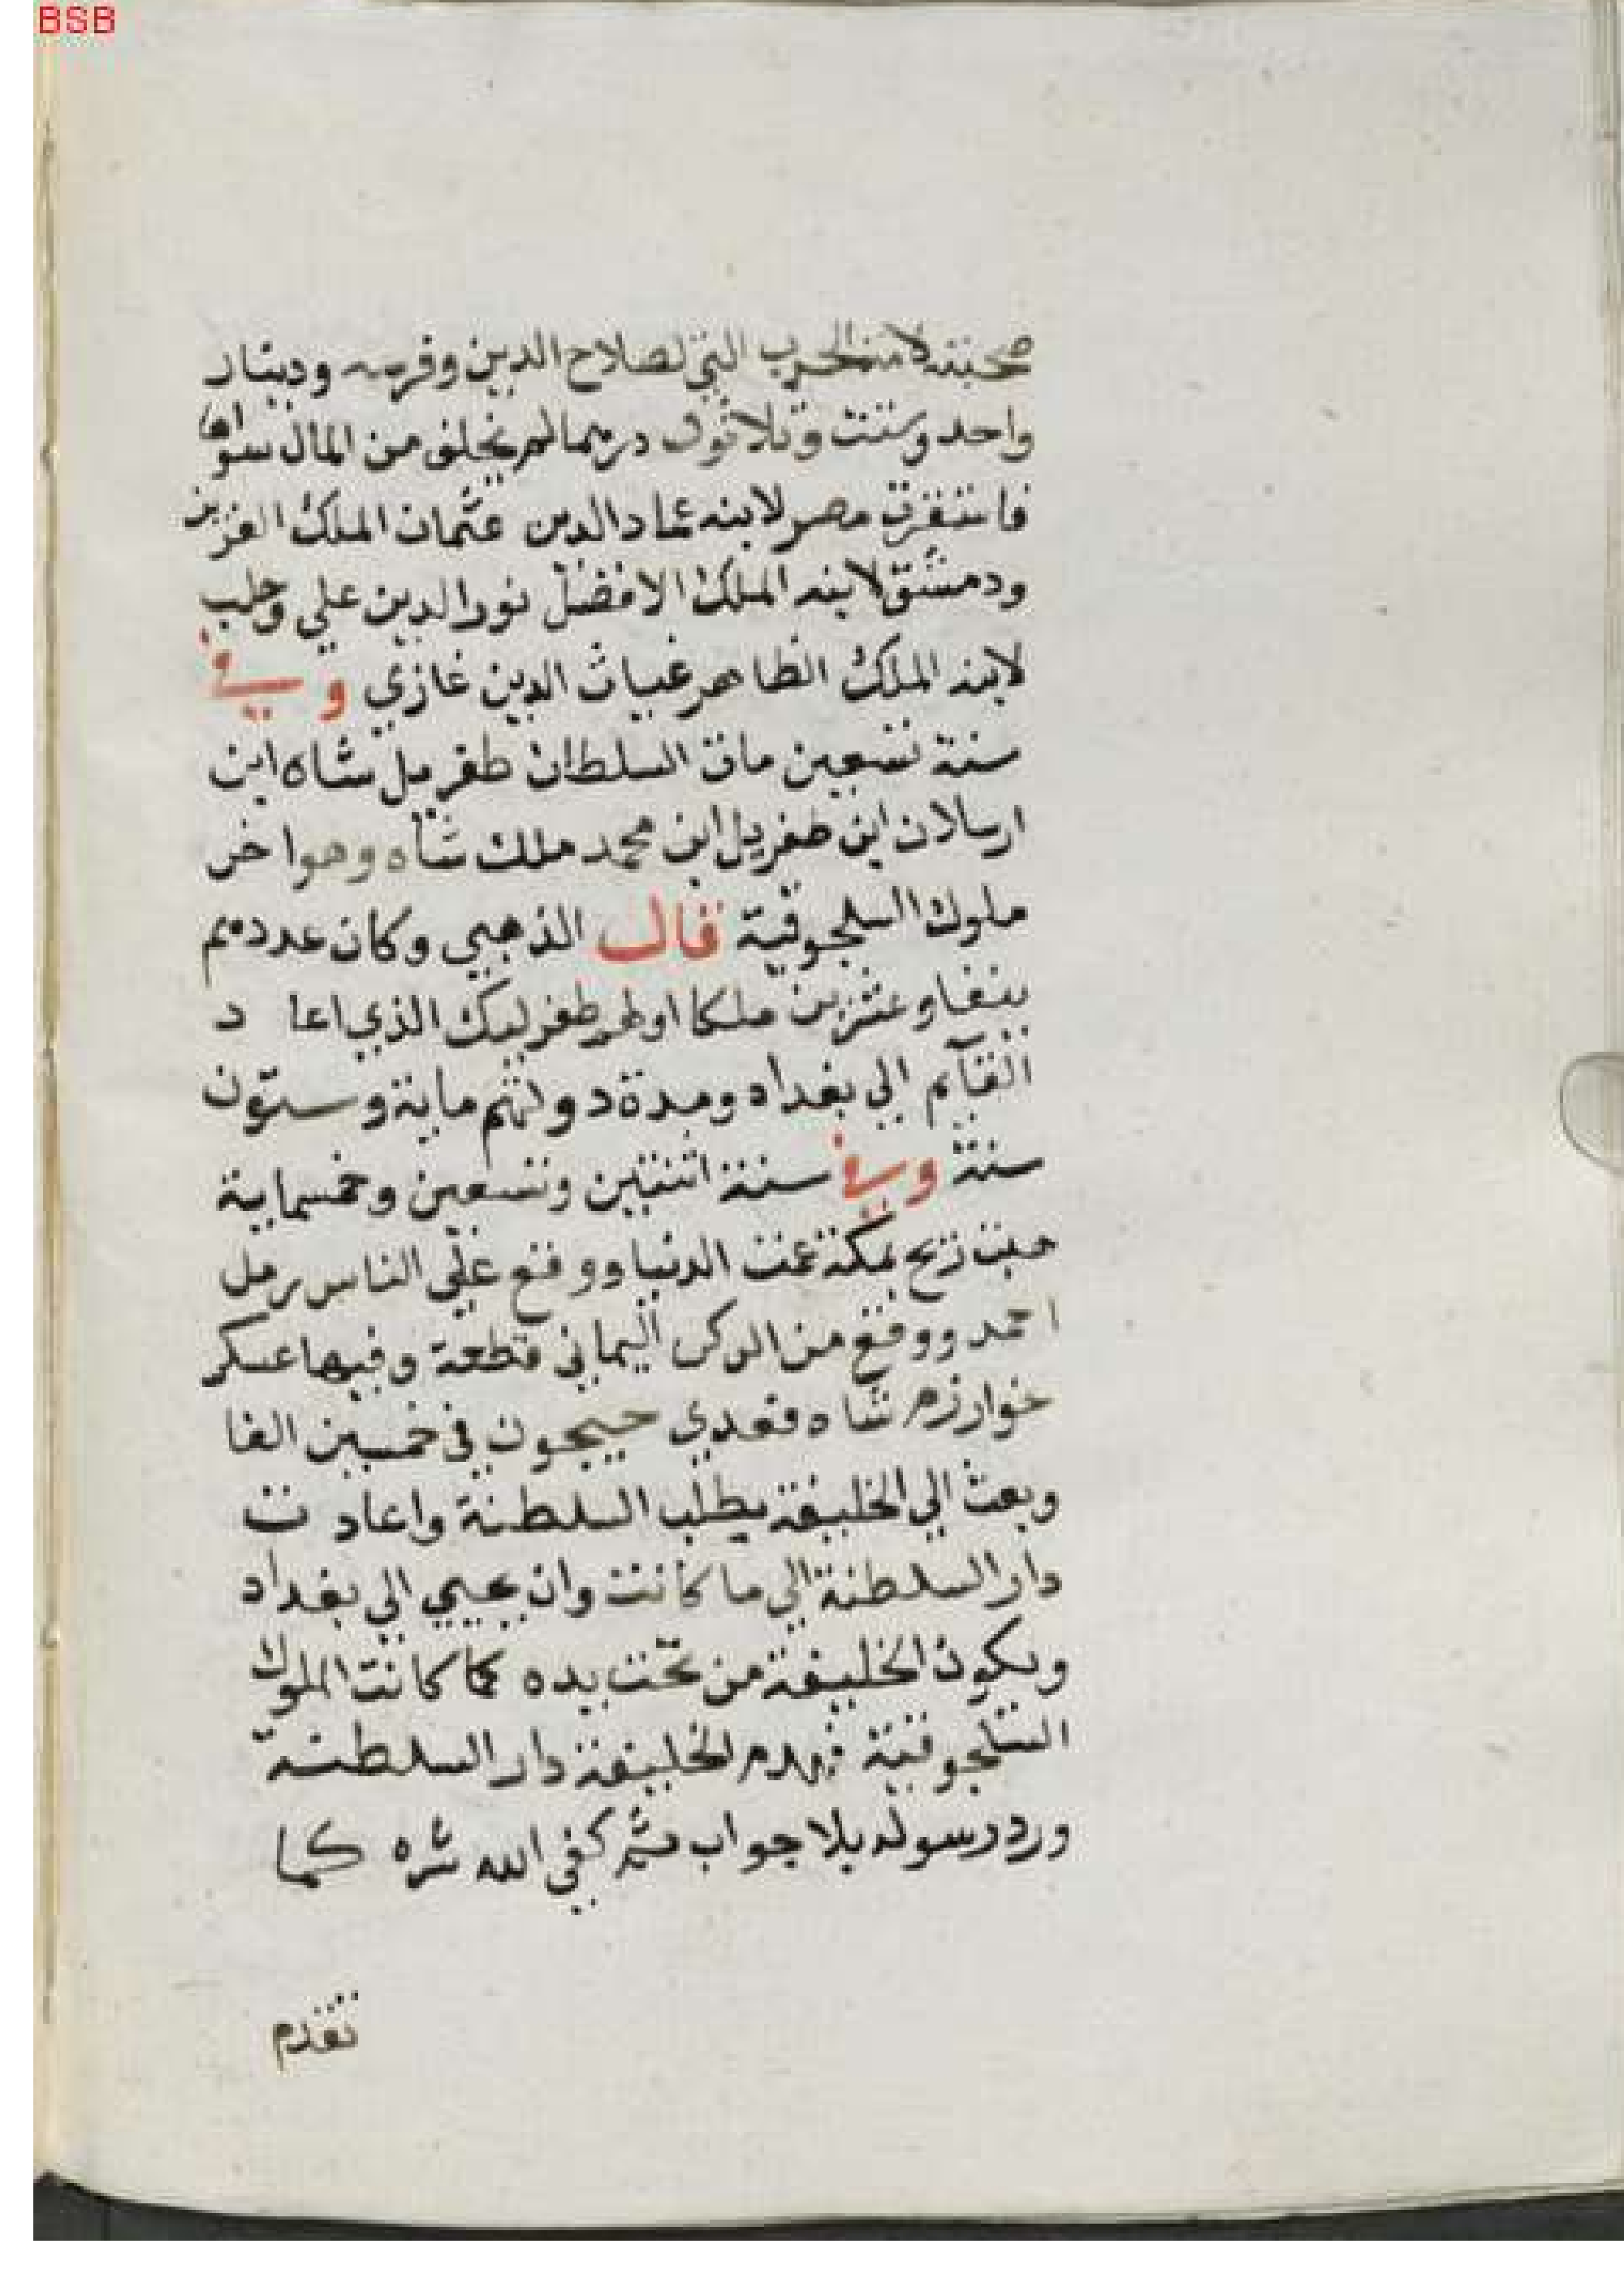 BSB
صحبته لامة الحرب التي لصلاح الدين وفرسه ودينار
واحد وستت وثلاثون درهما لم يخلف من المال سواها
فاستقرت مصر لابنه عماد الدين عثمان الملك العزيز
ودمشق لابنه الملك الافضل نور الدين علي وحلب
لابنه الملك الظاهر غياث الدين غازي وفي
سنة تسعين مات السلطان طغربل شاه ابن
ارسلان ابن طغريل ابن محمد ملك شاه وهو اخر
ملوك السلجوقية قال الذهبي وكان عددهم
نيفا وعشرين ملكا اولهم طغرلبك الذي اعا د
القآيم الي بغداد ومدة دولتهم ماية وستون
سنة وفي سنة اثنتين وتسعين وخمسماية
هبت ريح بمكة عمت الدنيا ووقع علي الناس رمل
احمد ووقع من الركن اليماني قطعة وفيها عسكر
خوارزم شاه فعدي جيحون في خمسين الفا
وبعث الي الخليفة يطلب السلطنة واعادت
دار السلطنة الي ما كانت وان يجيي الي بغداد
ويكون الخليفة من تحت يده كما كانت الملوك
السلجوقية فهدم الخليفة دار السلطنة
ورد رسوله بلا جواب ثم كفي الله شره كما
تقدم